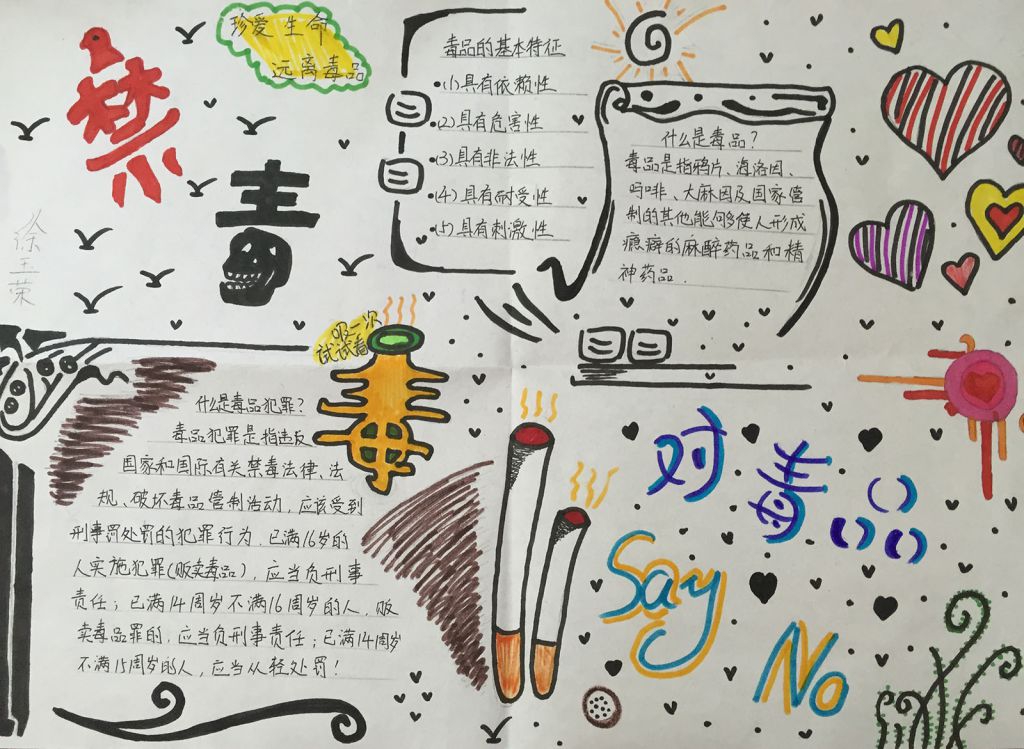 禁毒
珍爱生命
远离毒品
徐玉荣
毒品的基本特征
(1)具有依赖性
(2)具有危害性
(3)具有非法性
(4)具有耐受性
(5)具有刺激性
什么是毒品?
毒品是指鸦片、海洛因、
吗啡、大麻因及国家管
制的其他能够使人形成
瘾癖的麻醉药品和精
神药品.
吸一次
试试看
什么是毒品犯罪?
毒品犯罪是指违反
国家和国际有关禁毒法律、法
规、破坏毒品管制活动,应该受到
刑事罚处罚的犯罪行为,已满16岁的
人实施犯罪(贩卖毒品),应当负刑事
责任;已满14周岁不满16周岁的人,贩
卖毒品罪的,应当负刑事责任;已满14周岁
不满15周岁的人,应当从轻处罚!
对毒品
Say
No